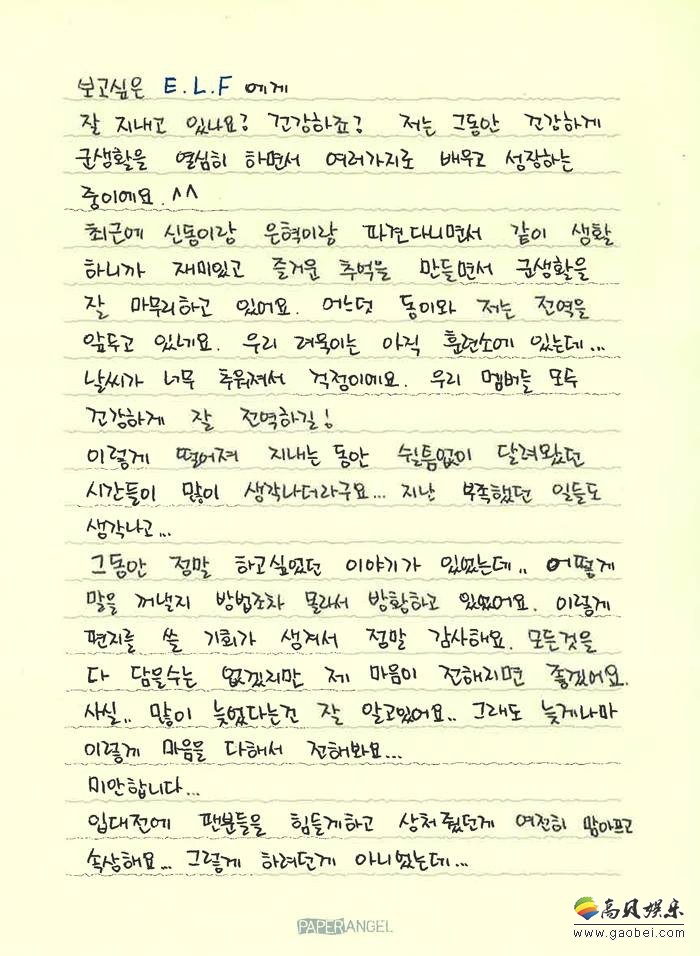 보고싶은 E.L.F 에게
잘 지내고 있나요? 건강하죠? 저는 그동안 건강하게
군생활을 열심히 하면서 여러가지로 배우고 성장하는
중이에요. ^^
최근에 신동이랑 은혁이랑 파견다니면서 같이 생활
하니까 재미있고 즐거운 추억을 만들면서 군생활을
잘 마무리하고 있어요. 어느덧 동이와 저는 전역을
앞두고 있네요. 우리 려욱이는 아직 훈련소에 있는데...
날씨가 너무 추워져서 걱정이에요. 우리 멤버들 모두
건강하게 잘 전역하길!
이렇게 떨어져 지내는 동안 쉴틈없이 달려왔던
시간들이 많이 생각나더라구요... 지난 부족했던 일들도
생각나고...
그동안 정말 하고싶었던 이야기가 있었는데.. 어떻게
말을 꺼낼지 방법조차 몰라서 방황하고 있었어요. 이렇게
편지를 쓸 기회가 생겨서 정말 감사해요. 모든것을
다 담을수는 없겠지만 제 마음이 전해지면 좋겠어요.
사실.. 많이 늦었다는건 잘 알고있어요.. 그래도 늦게나마
이렇게 마음을 다해서 전해봐요...
미안합니다...
입대전에 팬분들을 힘들게하고 상처줬던게 여전히 맘아프고
속상해요... 그렇게 하려던게 아니었는데...
PAPERANGEL
高贝娱乐
www.gaobei.com